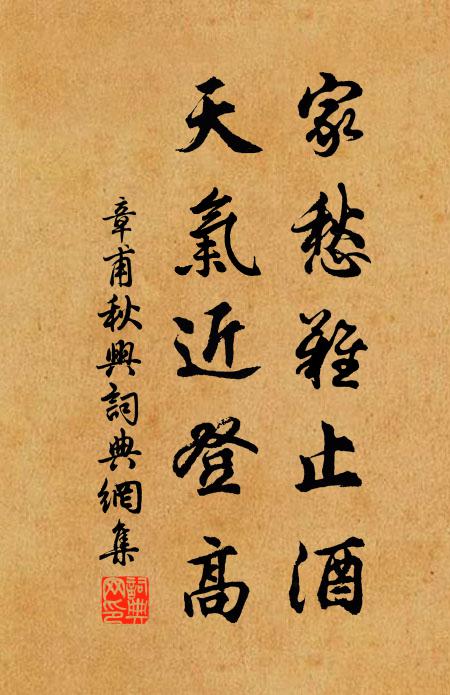 家愁難止酒
天氣近登高
章甫秋興詞典網集
詞典网印